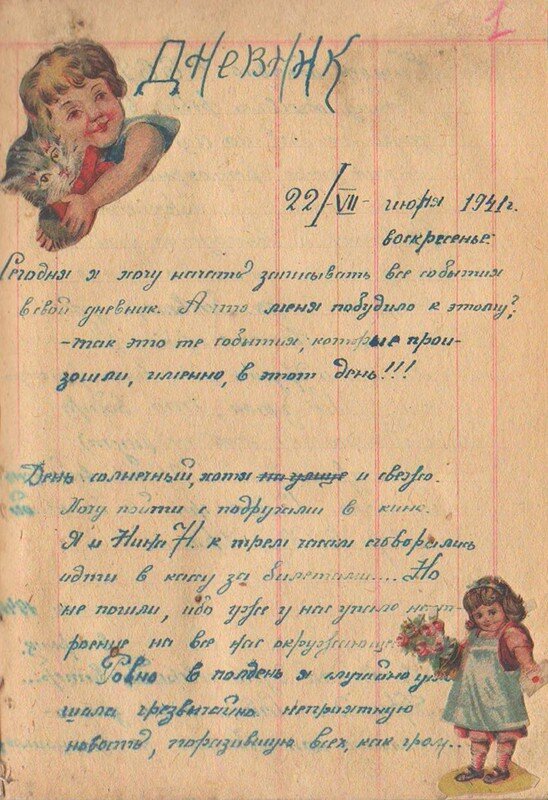 1
Дневник
22/VII- июня 1941г.
воскресенье.
Сегодня я хочу начать записывать все события
в свой дневник. А что меня побудило к этому?
-так это те события, которые прои-
зошли, именно, в этот день!!!
День солнечный, хотя на улице и свежо.
Хочу пойти с подругами в кино.
Я и Нина Н. к трем часам сговорились
идти в кассу за билетами.... Но
не пошли, ибо уже у нас упало наст-
роение на все нас окружающее
Ровно в полдень я случайно ус
шала чрезвычайно неприятную
новость, поразившую всех, как гром..